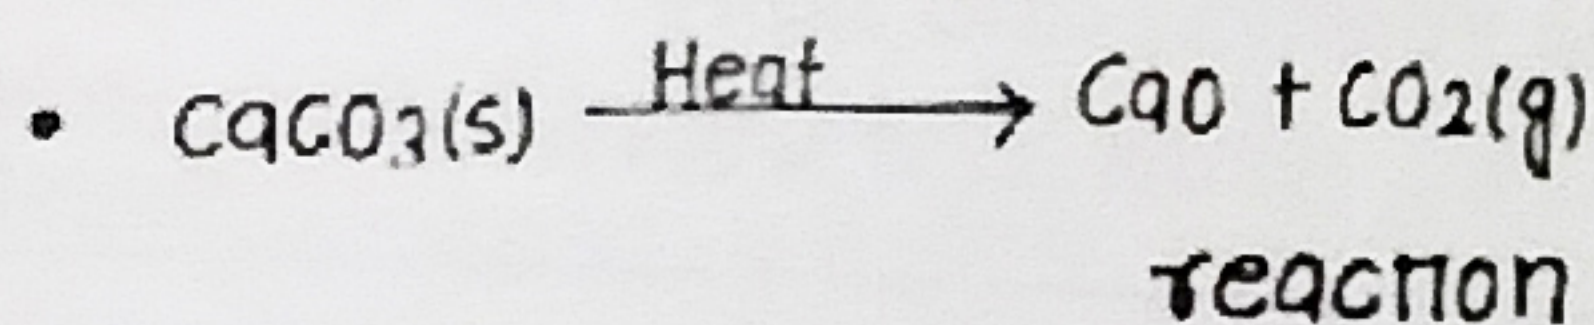 • CaCO3(s) Heat → CaO + CO2(g)
reaction